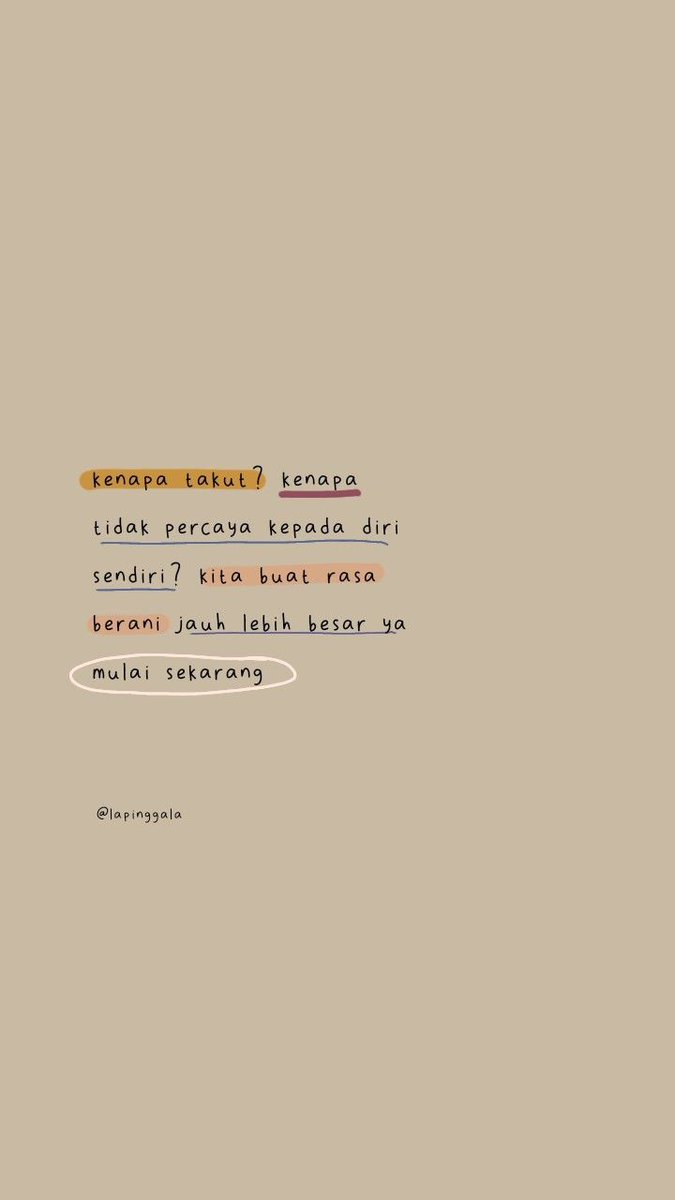 kenapa takut? kenapa
tidak percaya kepada diri
sendiri? kita buat rasa
berani jauh lebih besar ya
mulai sekarang
@lapinggala